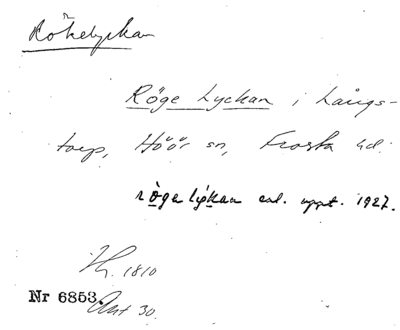 Rökelyckan
Röge Lyckan i Långs-
torp, Höör sn, Frosta hd.
rögelykan enl. uppt. 1927.
1810
Nr 6853. Ant 30.